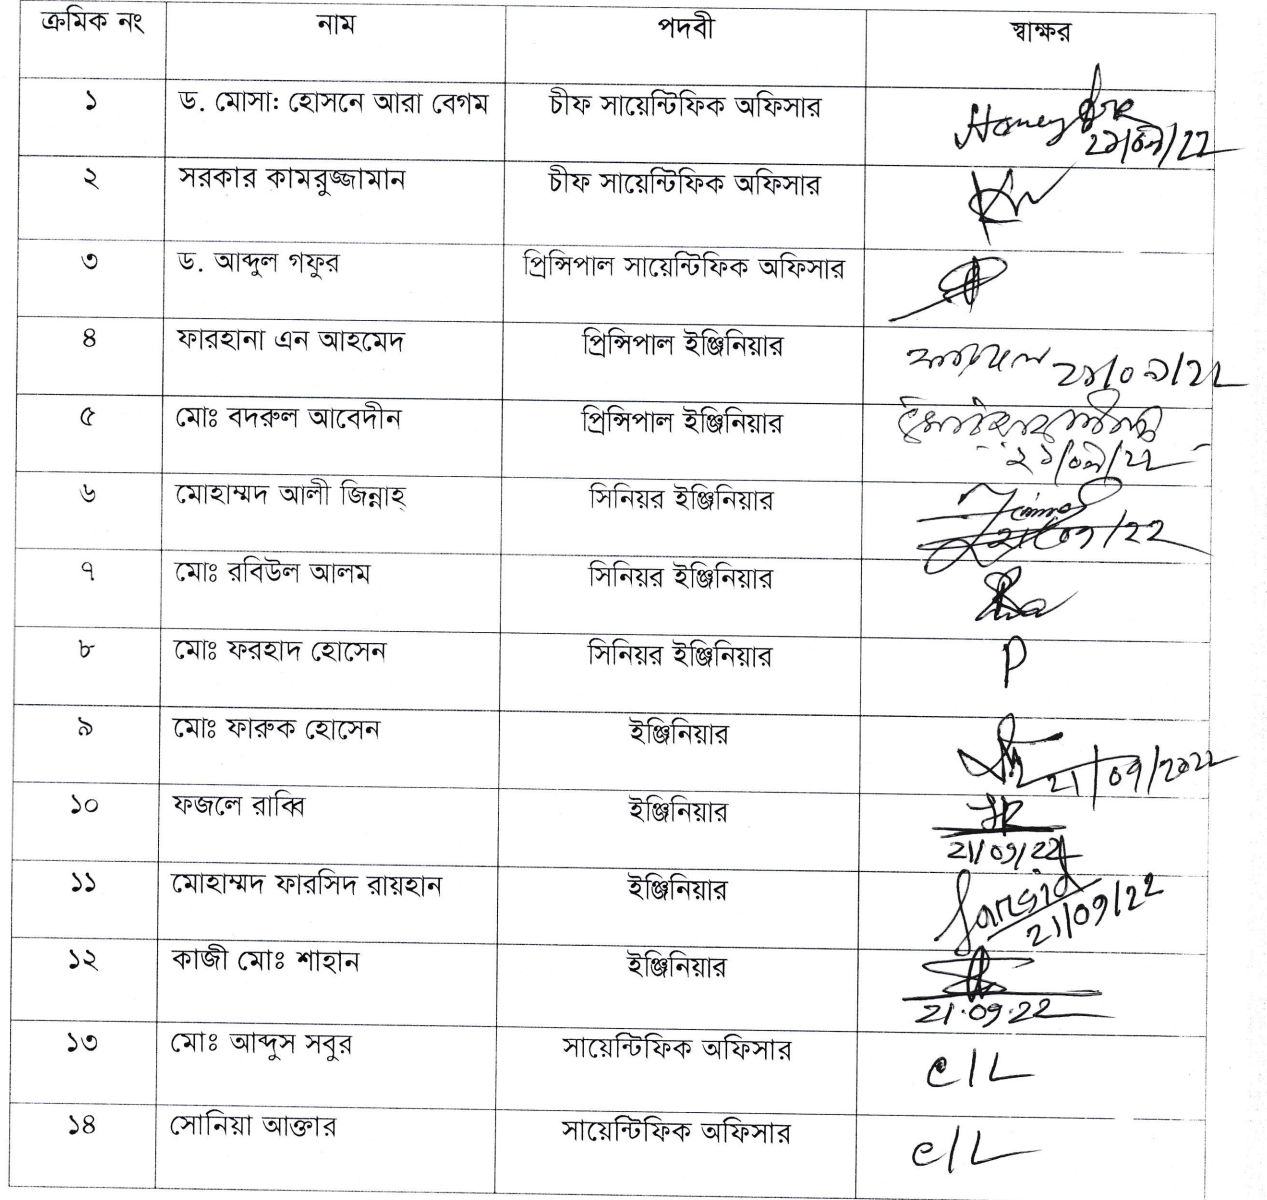 ক্রমিক নং নাম পদবী স্বাক্ষর
১ ড. মোসা: হোসনে আরা বেগম চীফ সায়েন্টিফিক অফিসার
২১/০৯/22
২ সরকার কামরুজ্জামান চীফ সায়েন্টিফিক অফিসার
৩ ড. আব্দুল গফুর প্রিন্সিপাল সায়েন্টিফিক অফিসার
৪ ফারহানা এন আহমেদ প্রিন্সিপাল ইঞ্জিনিয়ার
২১/০৯/২২
৫ মোঃ বদরুল আবেদীন প্রিন্সিপাল ইঞ্জিনিয়ার
২১/০৯/২২
৬ মোহাম্মদ আলী জিন্নাহ্ সিনিয়র ইঞ্জিনিয়ার
21/09/22
৭ মোঃ রবিউল আলম সিনিয়র ইঞ্জিনিয়ার
৮ মোঃ ফরহাদ হোসেন সিনিয়র ইঞ্জিনিয়ার P
৯ মোঃ ফারুক হোসেন ইঞ্জিনিয়ার
21/09/2022
১০ ফজলে রাব্বি ইঞ্জিনিয়ার
21/09/22
১১ মোহাম্মদ ফারসিদ রায়হান ইঞ্জিনিয়ার Farsid
21/09/22
১২ কাজী মোঃ শাহান ইঞ্জিনিয়ার
21.09.22
১৩ মোঃ আব্দুস সবুর সায়েন্টিফিক অফিসার c/L
১৪ সোনিয়া আক্তার সায়েন্টিফিক অফিসার c/L